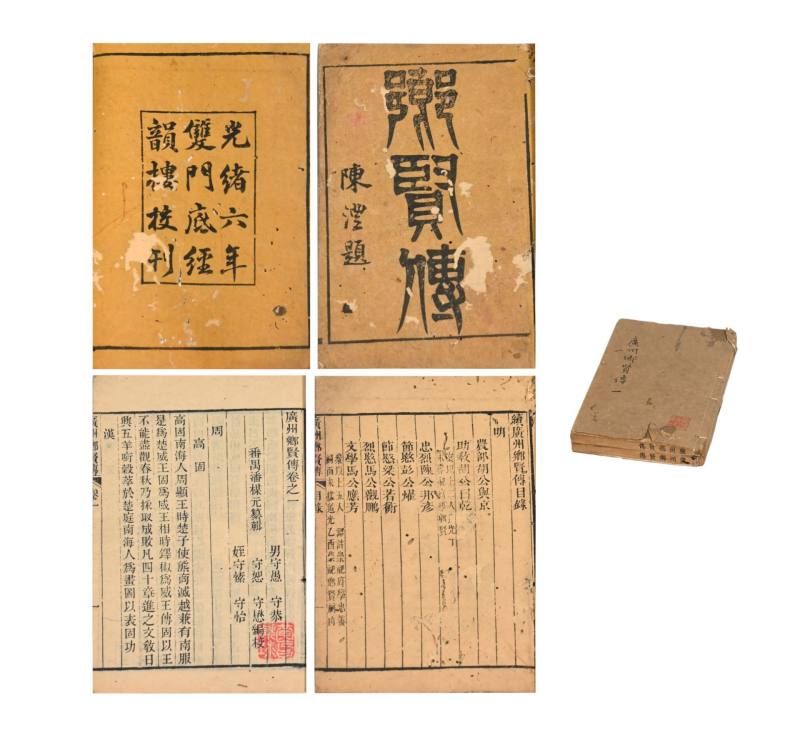 光緒六年
雙門底經
韻樓校刊
鄉賢傳
陳澧題
廣州鄉賢傳卷之一
番禺潘楳元纂輯
男守愚 守恭
守恕 守懋編校
姪守愫 守怡
周
高固
高固南海人周顯王時楚子使熊商滅越兼有南服
是爲威王固爲威王相時鐸椒爲威王傅固以王
不能盡觀春秋乃採取成敗凡四十章進之文敎日
興五羊銜穀莩於楚庭南海人爲畫圖以表固功
漢
廣州鄉賢傳 卷一 一
續廣州鄉賢傳目錄
明
農部胡公與京
助教胡公曰乾
忠烈陳公邦彥
節愍彭公燿
節愍梁公若衡
烈愍馬公觀鵬
文學馬公應芳
廣州鄉賢傳 目錄 一
廣州鄉賢傳 一